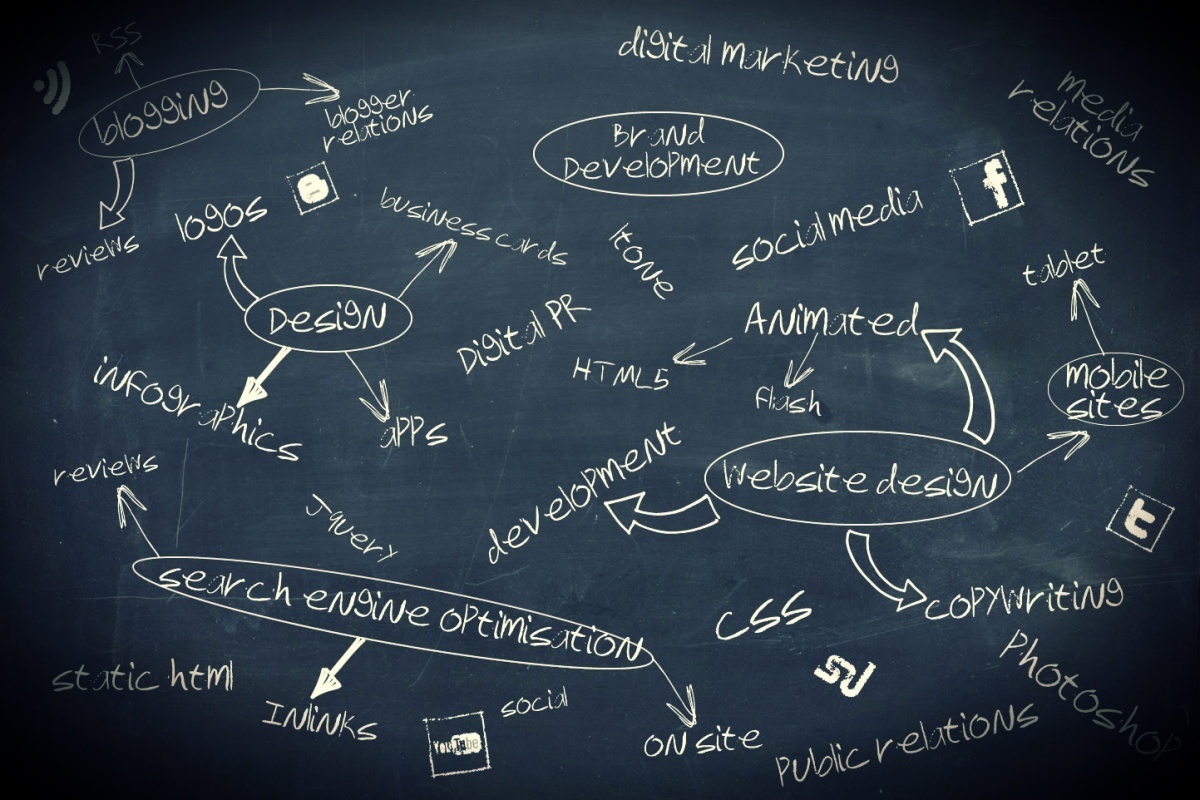 RSS
blogging
blogger
relations
reviews
digital marketing
media
relations
Brand
Development
logos
B
business cards
social media
f
tone
tablet
Design
Digital PR
Animated
HTML5
flash
mobile
sites
infographics
apps
development
website design
reviews
Jquery
t
search engine optimisation
css
copywriting
Photoshop
static html
Inlinks
social
YouTube
on site
public relations